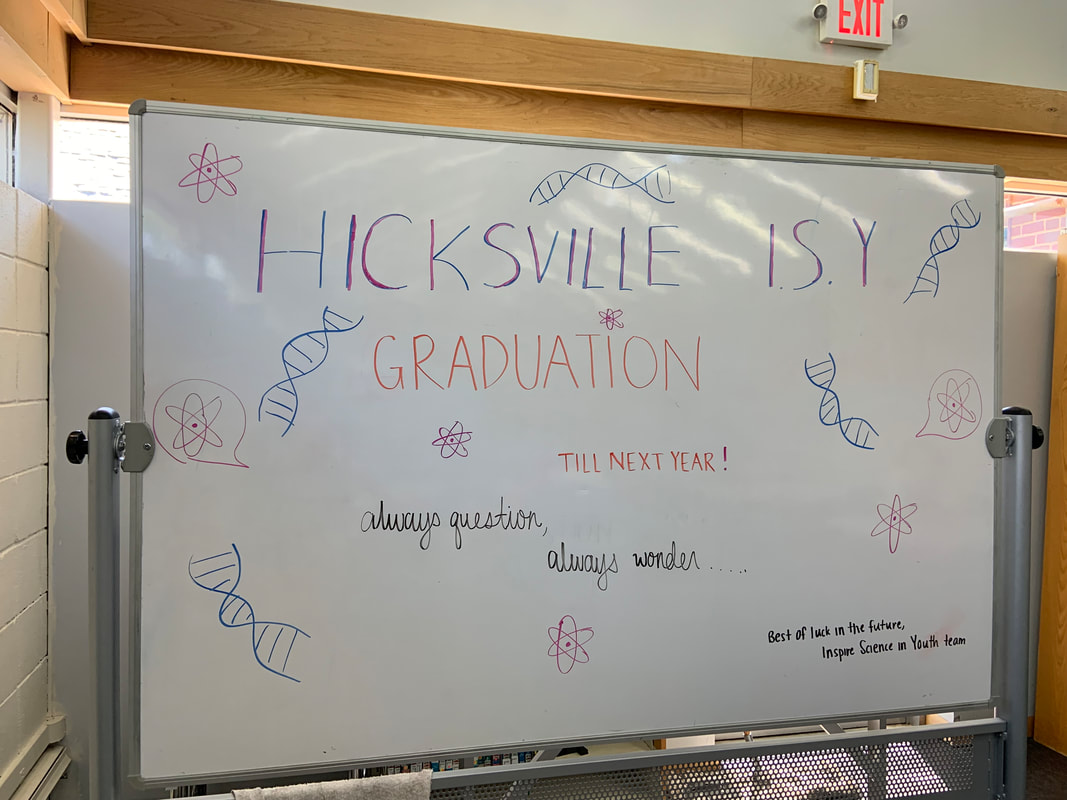 EXIT
HICKSVILLE I.S.Y
GRADUATION
TILL NEXT YEAR!
always question,
always wonder.....
Best of luck in the future,
Inspire Science in Youth team